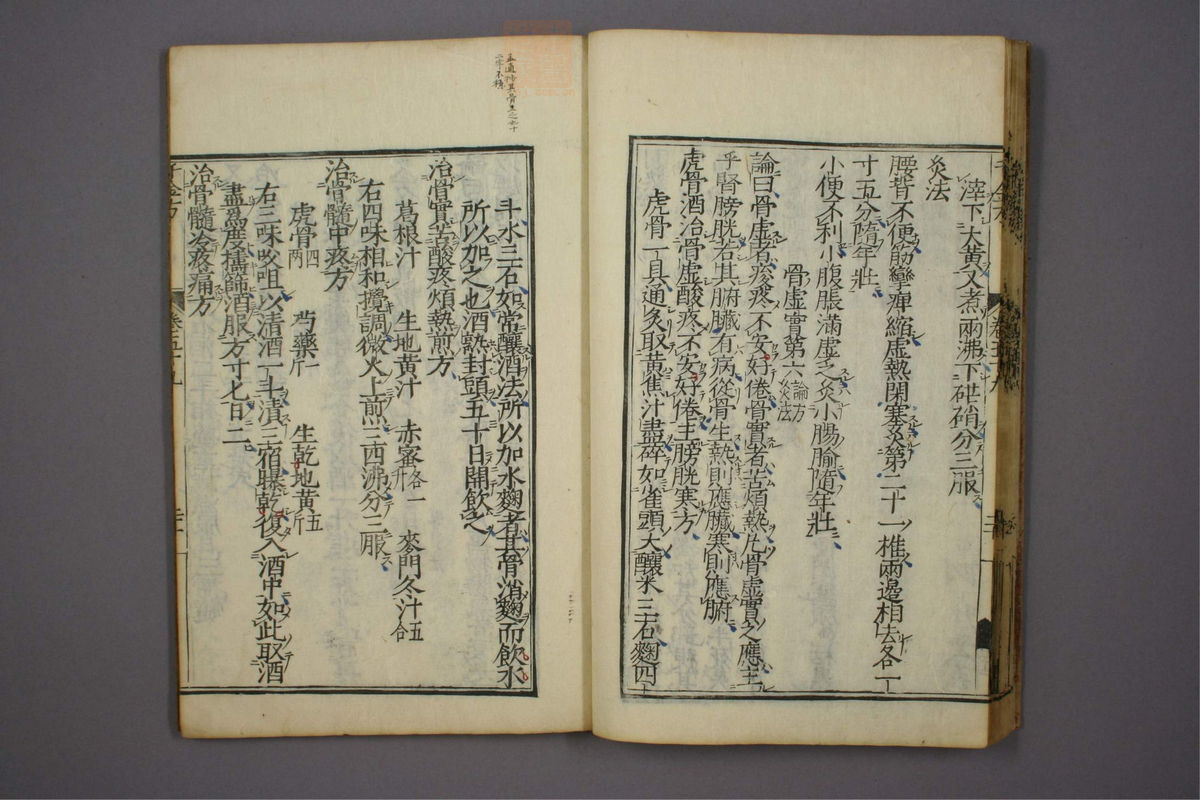 滓下大黃又煮兩沸下芒硝分三服
灸法
腰背不便筋攣痺縮虛熱閑塞灸第二十一椎兩邊相去各一
寸五分隨年壯
小便不利小腹脹滿虛乏灸小腸腧隨年壯
骨虛實第六 論方灸法
論曰骨虛者痠疼不安好倦骨實者苦煩熱凡骨虛實之應主
乎腎膀胱若其腑臟有病從骨生熱則應臟寒則應腑
虎骨酒治骨虛酸疼不安好倦主膀胱寒方
虎骨一具通炙取黃焦汁盡碎如雀頭大釀米三石麴四
斗水三石如常釀酒法所以加水麴者其骨消麴而飲水
所以加之也酒熟封頭五十日開飲之
治骨實苦酸疼煩熱煎方
葛根汁 生地黃汁 赤蜜各一升 麥門冬汁五合
右四味相和攪調微火上煎三四沸分三服
治骨髓中疼方
虎骨四兩 芍藥一斤 生乾地黃五斤
右三味㕮咀以清酒一斗漬三宿曝乾復入酒中如此取酒
盡爲度擣篩酒服方寸七日三
治骨髓冷疼痛方